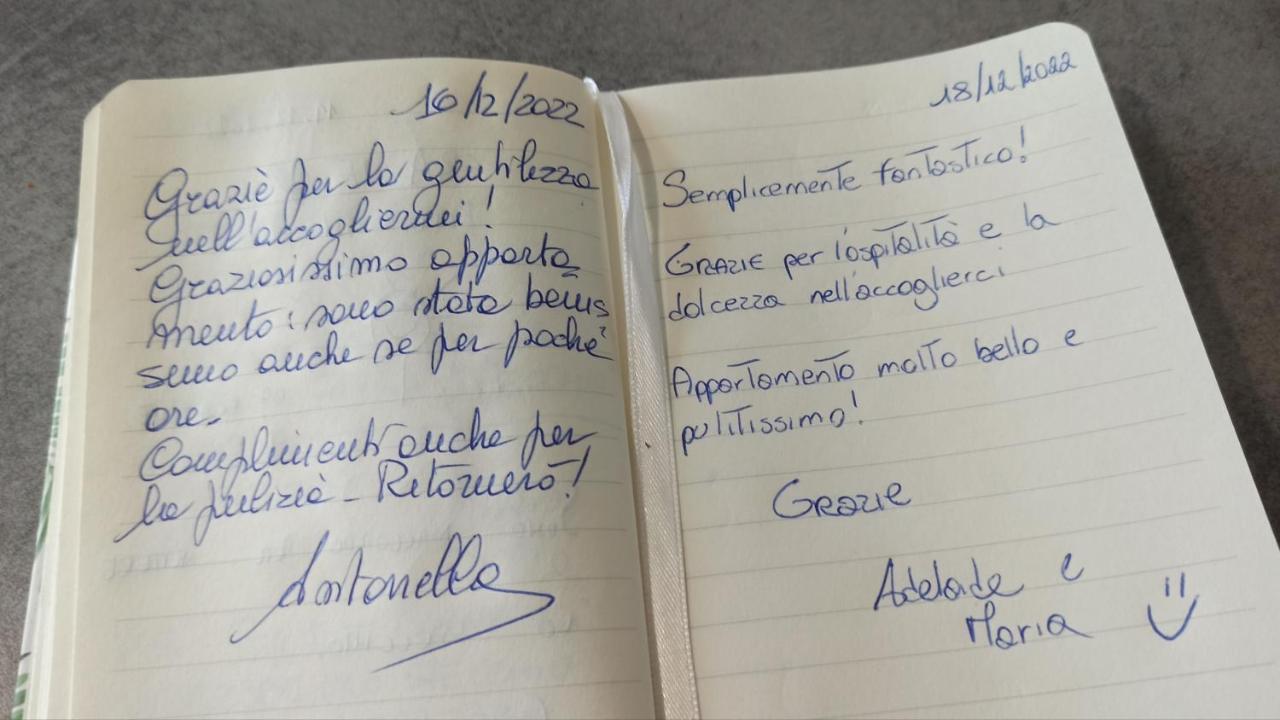 16/12/2022
Grazie per la gentilezza
nell'accogliermi!
Graziosissimo apparta
mento: sono stata benis
simo anche se per poche
ore.
Complimenti anche per
la pulizia - Ritornerò!
Antonella
18/12/2022
Semplicemente fantastico!
Grazie per l'ospitalità e la
dolcezza nell'accoglierci
Appartamento molto bello e
pulitissimo!
Grazie
Adelaide e
Maria